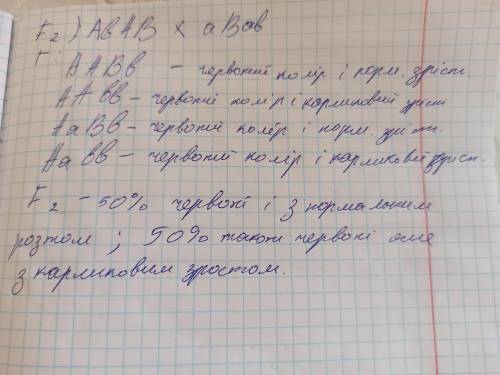 F₂) АвАВ х аВав
F:
ААВв – червоний колір і норм. зріст.
ААвв – червоний колір і карликовий зріст
АаВв – червоний колір і норм. зріст.
Аавв – червоний колір і карликовий зріст.
F₂ – 50% червоні і з нормальним
розтом ; 50% також червоні але
з карликовим зростом.